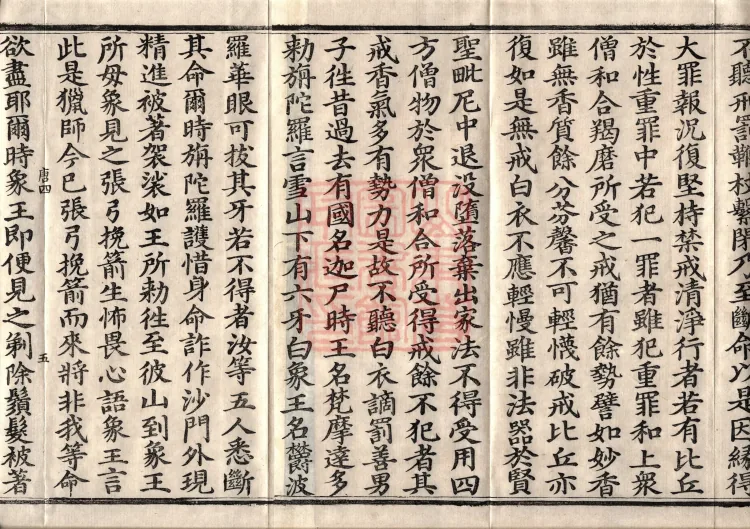 不聽戒罰鞭杖繫閉乃至斷命以是因緣得
大罪報況復堅持禁戒清淨行者若有比丘
於性重罪中若犯一罪者雖犯重罪和上衆
僧和合羯磨所受之戒猶有餘勢譬如妙香
雖無香質餘分芬馨不可輕懱破戒比丘亦
復如是無戒白衣不應輕慢雖非法器於賢
聖毗尼中退没墮落棄出家法不得受用四
方僧物於衆僧和合所受得戒餘不犯者其
戒香氣多有勢力是故不聽白衣謫罰善男
子徃昔過去有國名迦尸時王名梵摩達多
勑旃陀羅言雪山下有六牙白象王名欝波
羅華眼可拔其牙若不得者汝等五人悉斷
其命爾時旃陀羅護惜身命詐作沙門外現
精進被著袈裟如王所勑徃至彼山到象王
所母象見之張弓挽箭生怖畏心語象王言
此是獵師今已張弓挽箭而來將非我等命
唐四 五
欲盡耶爾時象王即便見之剃除鬚髮被著